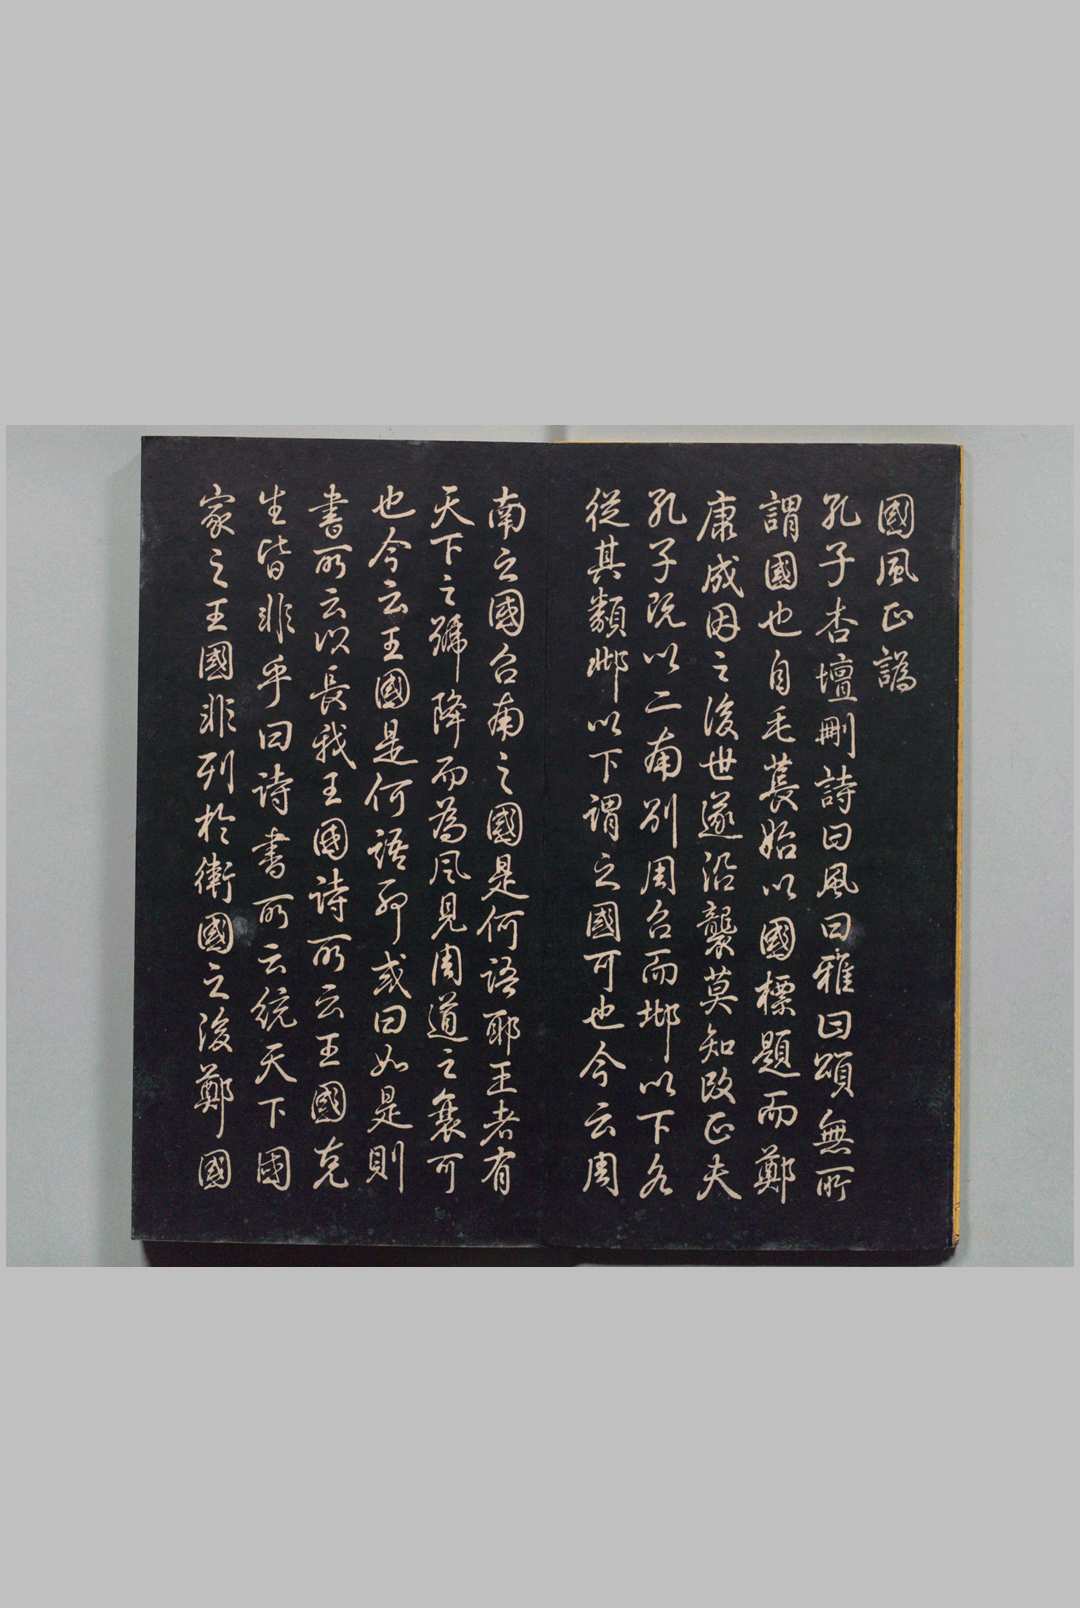 國風正譌
孔子杏壇刪詩曰風曰雅曰頌無所
謂國也自毛萇始以國標題而鄭
康成因之後世遂沿襲莫知改正夫
孔子既以二南別周召而邶以下各
從其類邶以下謂之國可也今云周
南之國召南之國是何語耶王者有
天下之號降而為風見周道之衰可
也今云王國是何語耶或曰如是則
書所云以長我王國詩所云王國克
生皆非乎曰詩書所云統天下國
家之王國非列於衛國之後鄭國